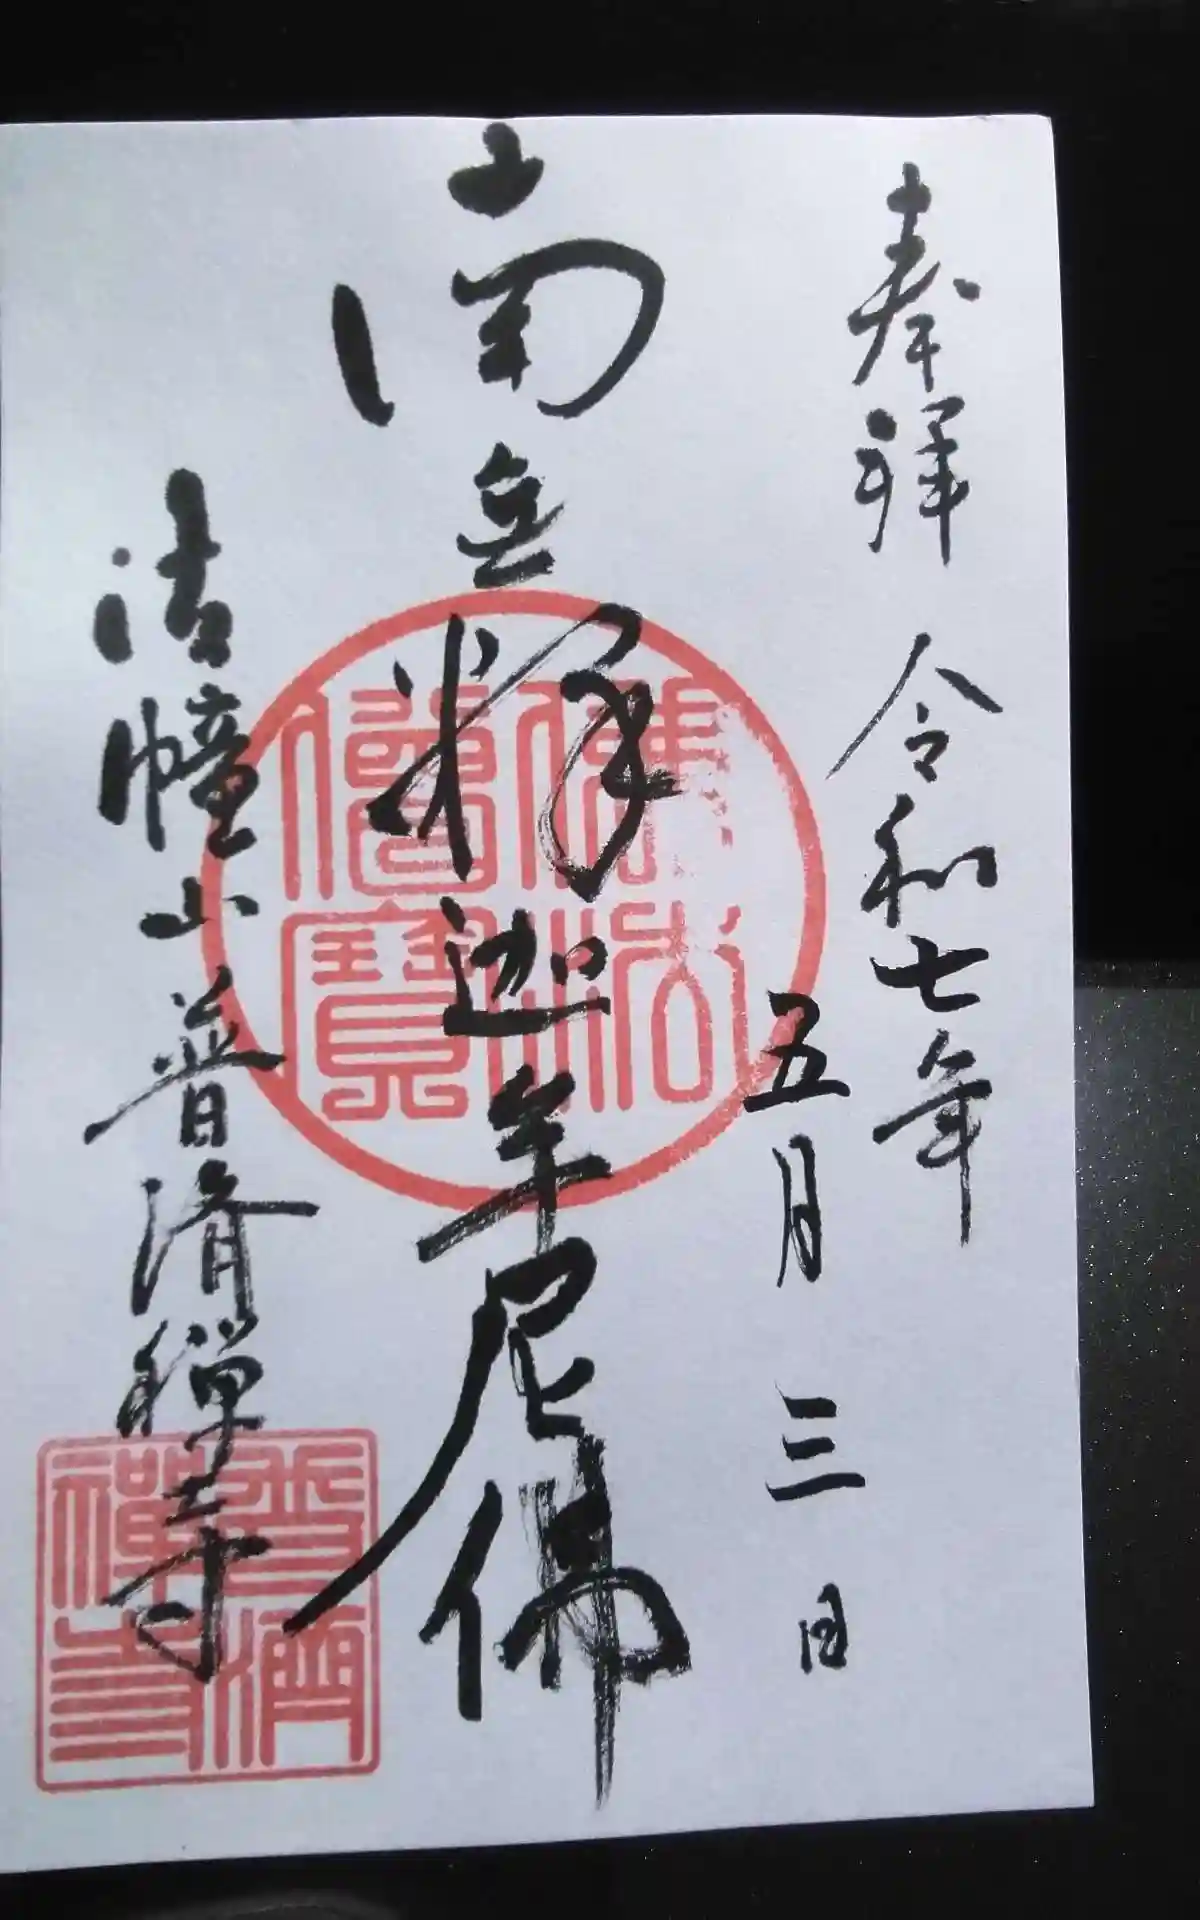 奉拝 令和七年
五月三日
南無釋迦牟尼佛
法幢山普済禅寺
佛法僧寶
普濟禪寺